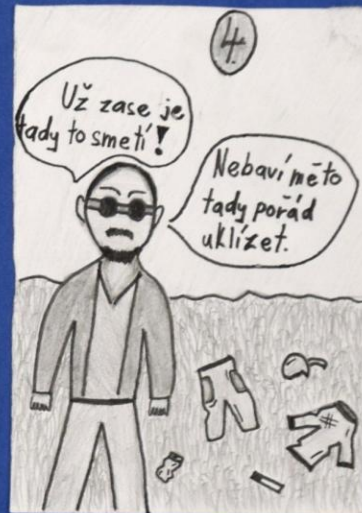 4.
Už zase je
tady to smetí!
Nebaví mě to
tady pořád
uklízet.